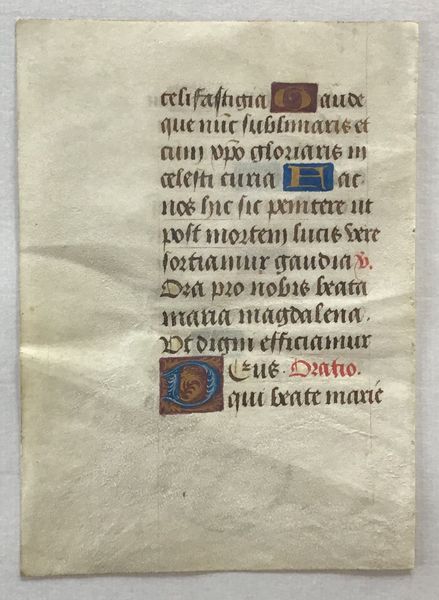 celi fastigia Gaude
que nūc sublimaris et
cum xp̄o gloriaris in
celesti curia Hac
nos hic sic penitere ut
post mortem lucis vere
sortiamur gaudia v̄.
Ora pro nobis beata
maria magdalena.
Ut digni efficiamur
Deus. Oratio.
qui beate marie